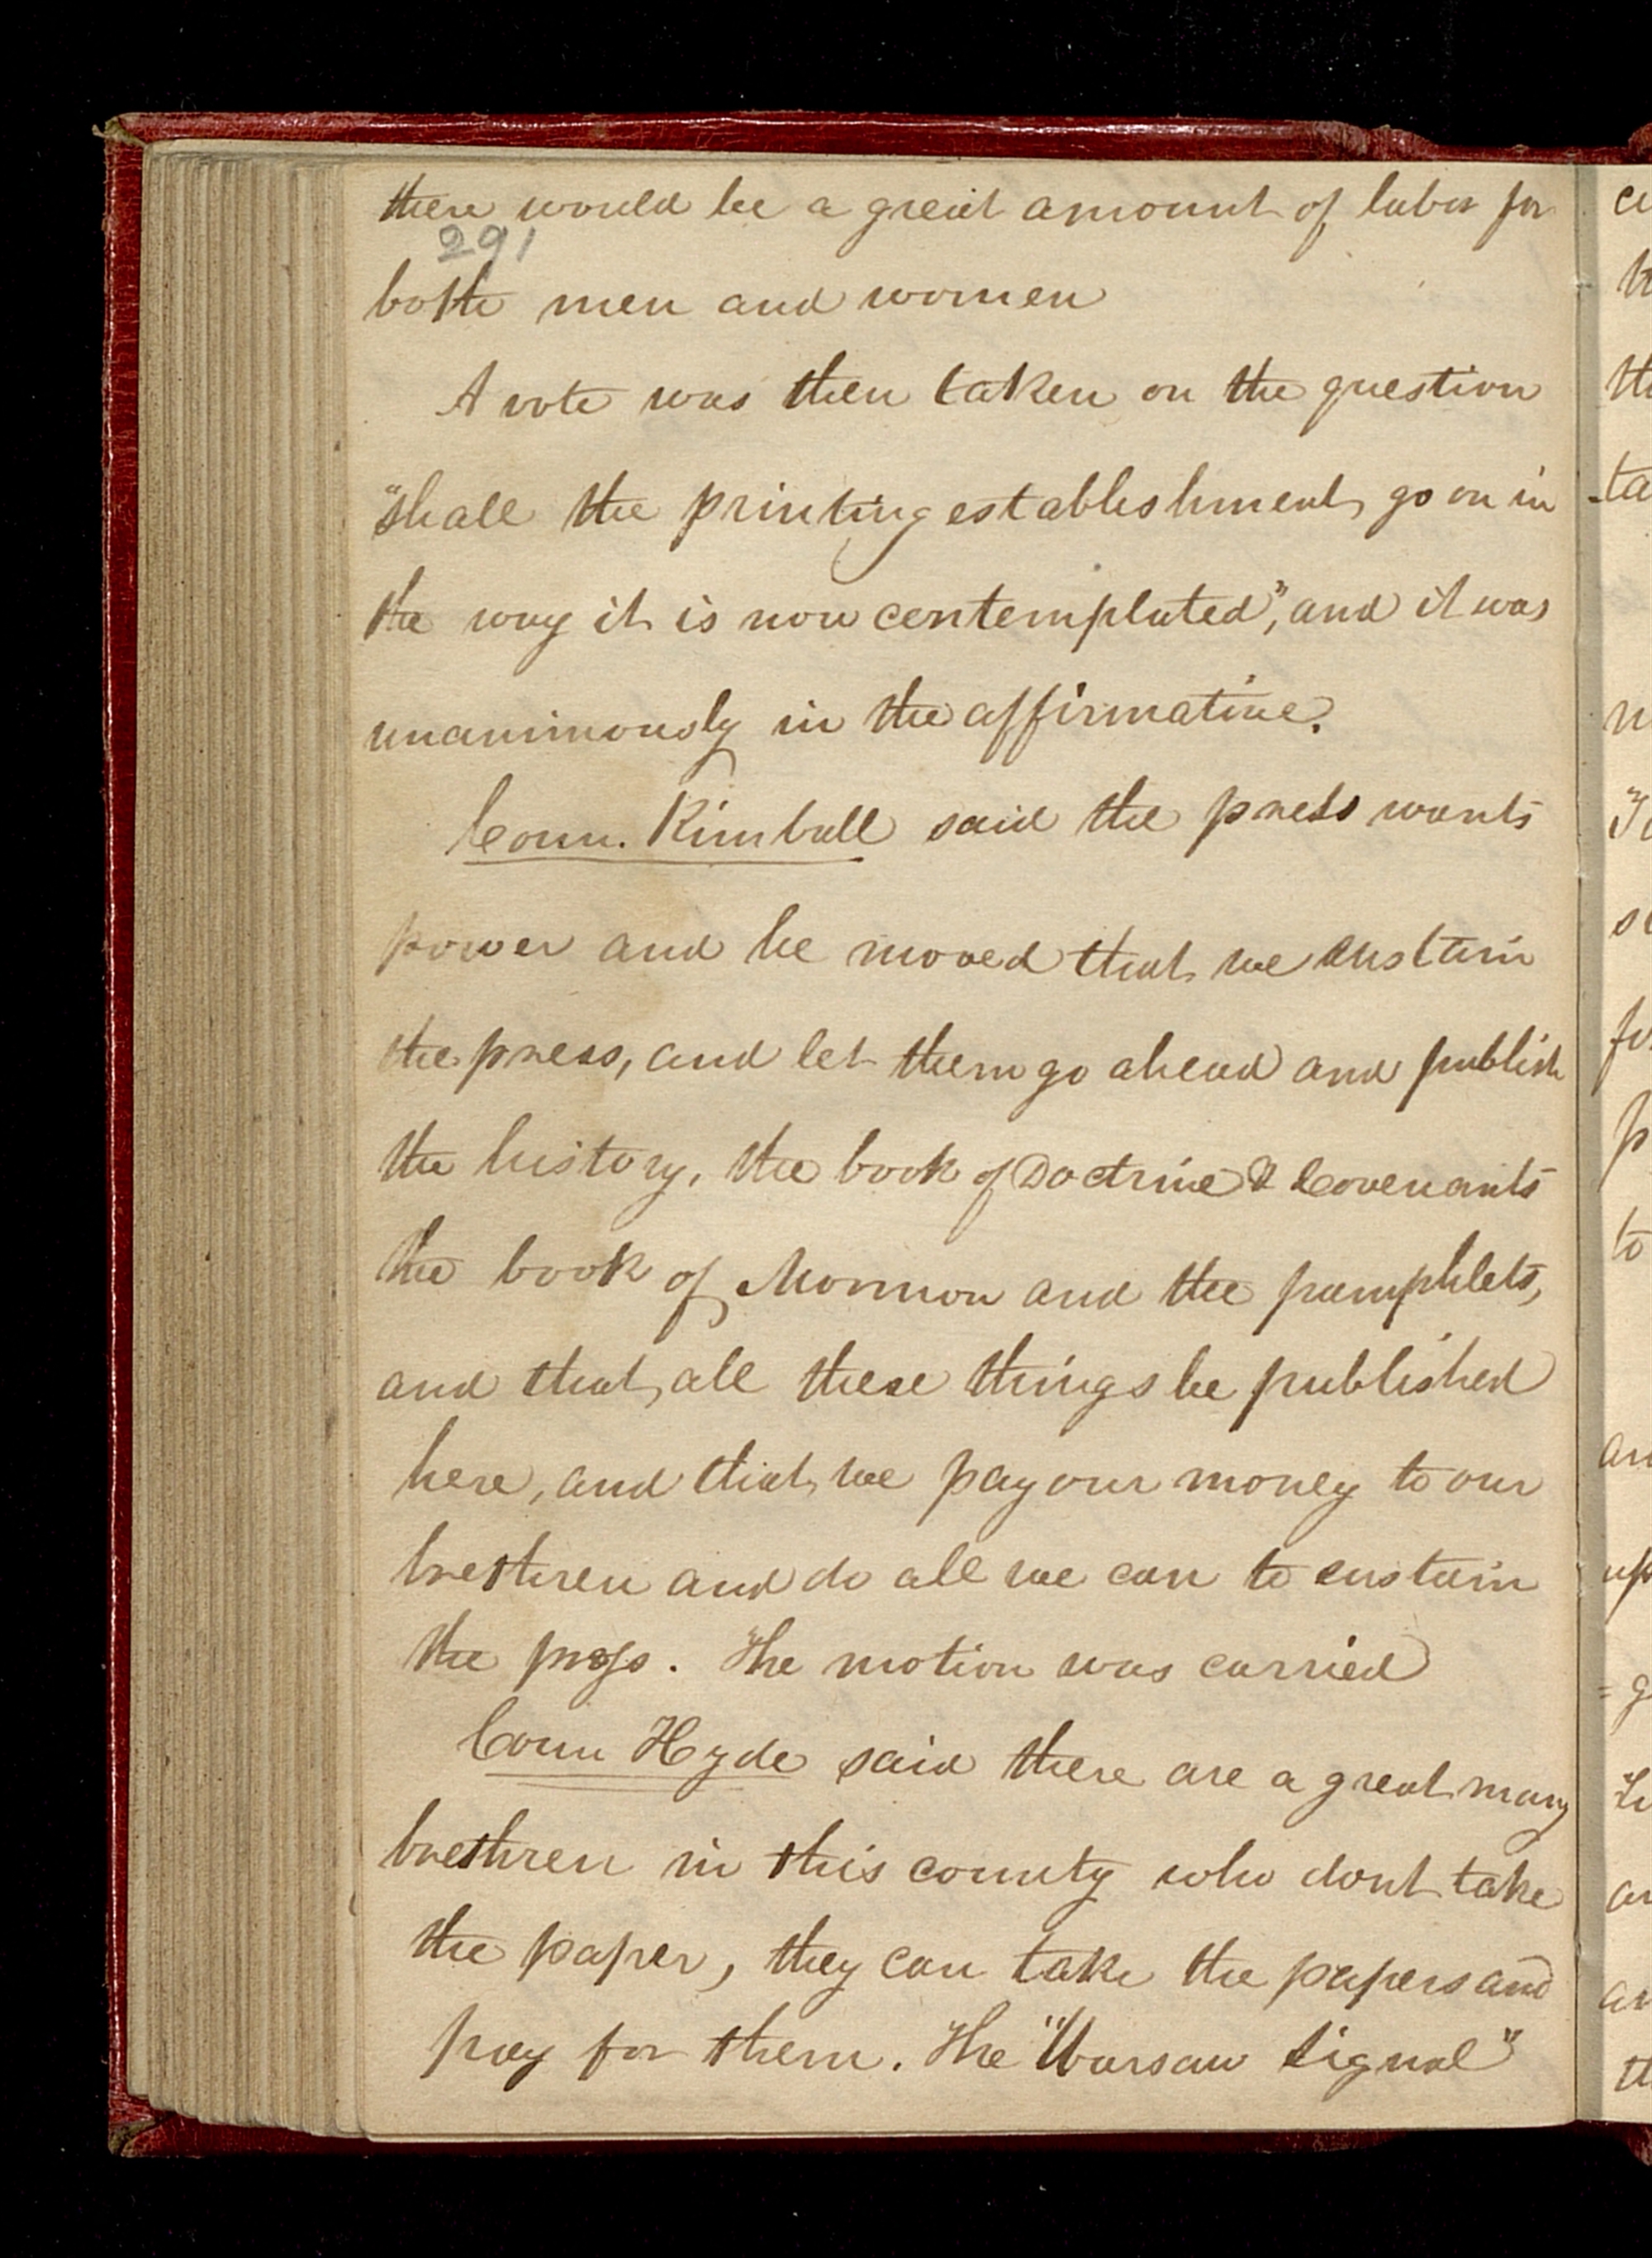 there would be a great amount of labor for
291
both men and women
A vote was then taken on the question
"shall the printing establishment go on in
the way it is now contemplated", and it was
unanimously in the affirmative.
Coun. Kimball said the press wants
power and he moved that we sustain
the press, and let them go ahead and publish
the history, the book of Doctrine & Covenants
the book of Mormon and the pamphlets,
and that all these things be published
here, and that we pay our money to our
brethren and do all we can to sustain
the press. The motion was carried
Coun Hyde said there are a great many
brethren in this county who dont take
the paper, they can take the papers and
pay for them. The "Warsaw Signal"